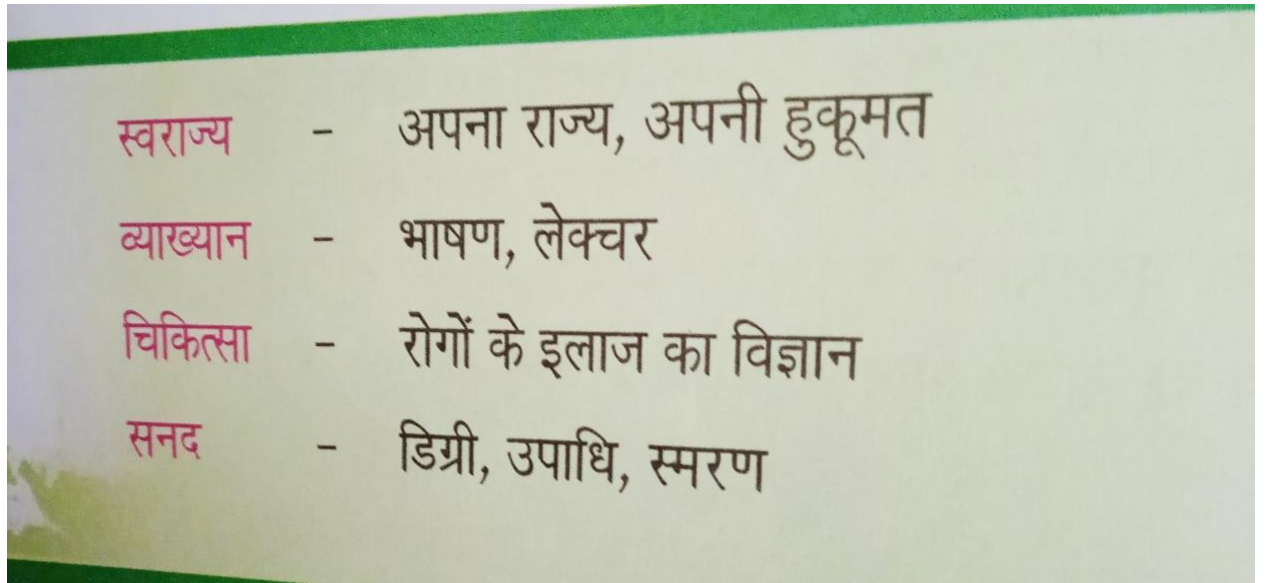 स्वराज्य - अपना राज्य, अपनी हुकूमत
व्याख्यान - भाषण, लेक्चर
चिकित्सा - रोगों के इलाज का विज्ञान
सनद - डिग्री, उपाधि, स्मरण